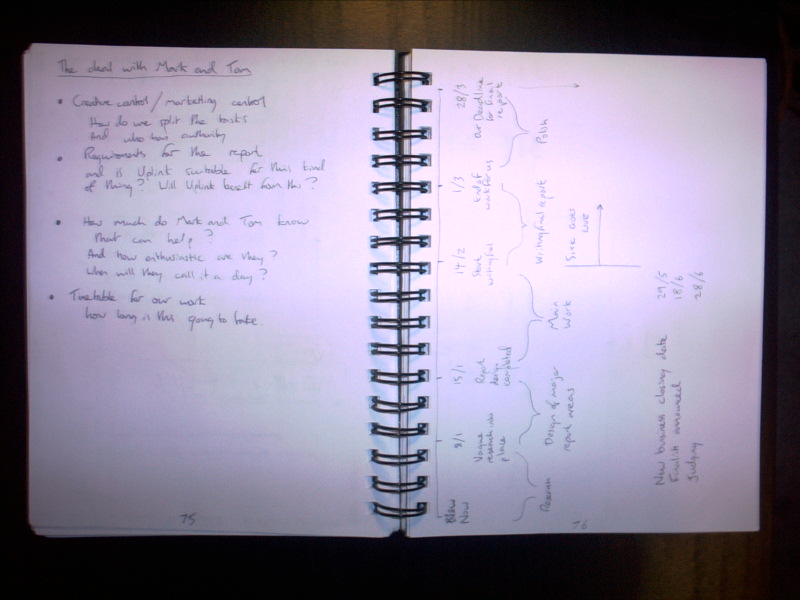 The deal with Mark and Tom
• Creative control / marketing control
How do we split the tasks
And who has authority
• Requirements for the report
and is Uplink suitable for this kind
of thing? Will Uplink benefit from this?
• How much do Mark and Tom know
that can help?
And how enthusiastic are they?
When will they call it a day?
• Timetable for our work
how long is this going to take.
75
Now
8/1
Vague
research into
place
15/1
Report
design
completed
14/2
Start
writing full
1/3
End of
work for us
28/3
our Deadline
for final
report
Research
Design of major
report areas
Main
Work
Writing final report
Polish
Site goes
live
New business closing date 29/5
Finalist announced 18/6
Judging 28/6